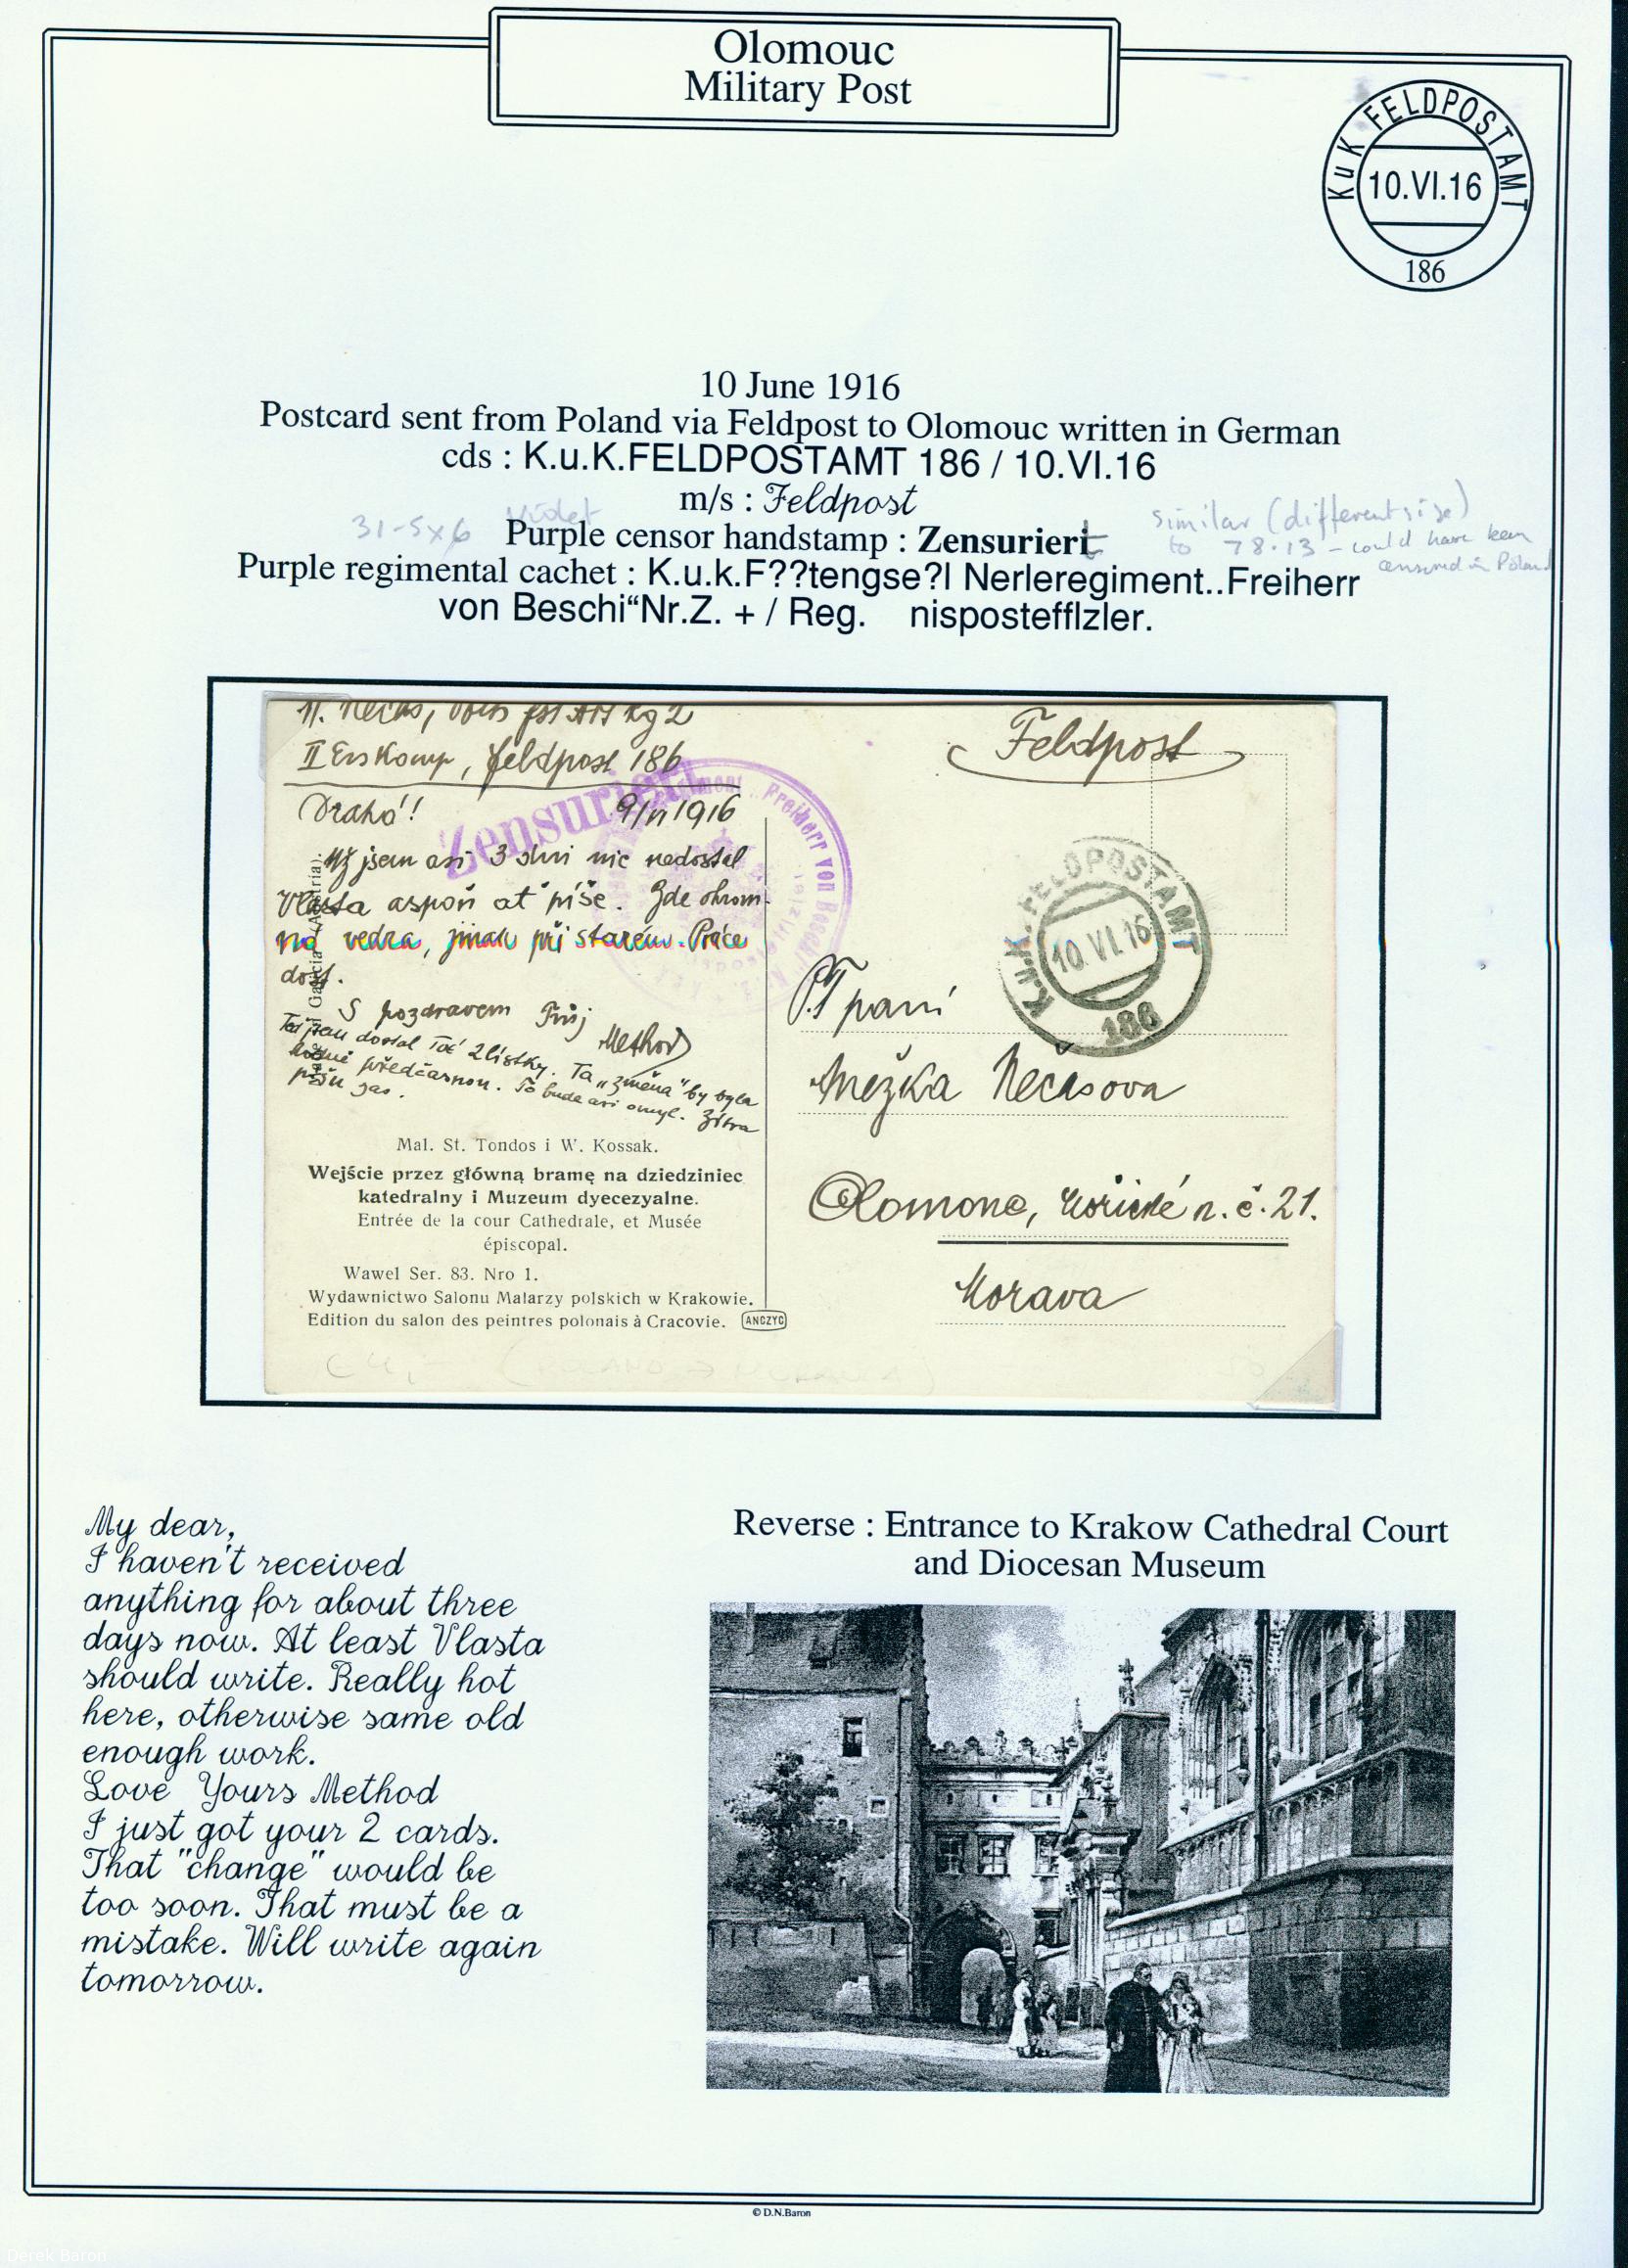 Olomouc
Military Post
KuK FELDPOSTAMT
10.VI.16
186
10 June 1916
Postcard sent from Poland via Feldpost to Olomouc written in German
cds : K.u.K.FELDPOSTAMT 186 / 10.VI.16
m/s : Feldpost
31-5x6 Violet
Purple censor handstamp : Zensuriert
similar (different size)
to 78.13 - could have been
censored in Poland
Purple regimental cachet : K.u.k.F??tengse?l Nerleregiment..Freiherr
von Beschi“Nr.Z. + / Reg. nispostefflzler.
II Ers Komp, feldpost 186
Feldpost
Drahá!
9/VI 1916
Zensuriert
Freiherr von
Už jsem asi 3 dni nic nedostal
Vlasta aspoň ať píše. Zde ohrom-
ná vedra, jinak při starém. Práce
dost.
S pozdravem Tvůj
Method
Teď jsem dostal Tvé 2 lístky. Ta „změna" by byla
hodně předčasnou. To bude asi omyl. Zítra
píšu zas.
K.u.K. FELDPOSTAMT
10 VI. 16
186
P.T paní
Anežka Nečasova
Olomouc, n. č. 21.
Morava
Mal. St. Tondos i W. Kossak.
Wejście przez główną bramę na dziedziniec
katedralny i Muzeum dyecezyalne.
Entrée de la cour Cathedrale, et Musée
épiscopal.
Wawel Ser. 83. Nro 1.
Wydawnictwo Salonu Malarzy polskich w Krakowie.
Edition du salon des peintres polonais à Cracovie.
ANCZYC
My dear,
I haven't received
anything for about three
days now. At least Vlasta
should write. Really hot
here, otherwise same old
enough work.
Love Yours Method
I just got your 2 cards.
That "change" would be
too soon. That must be a
mistake. Will write again
tomorrow.
Reverse : Entrance to Krakow Cathedral Court
and Diocesan Museum
© D.N.Baron
Derek Baron